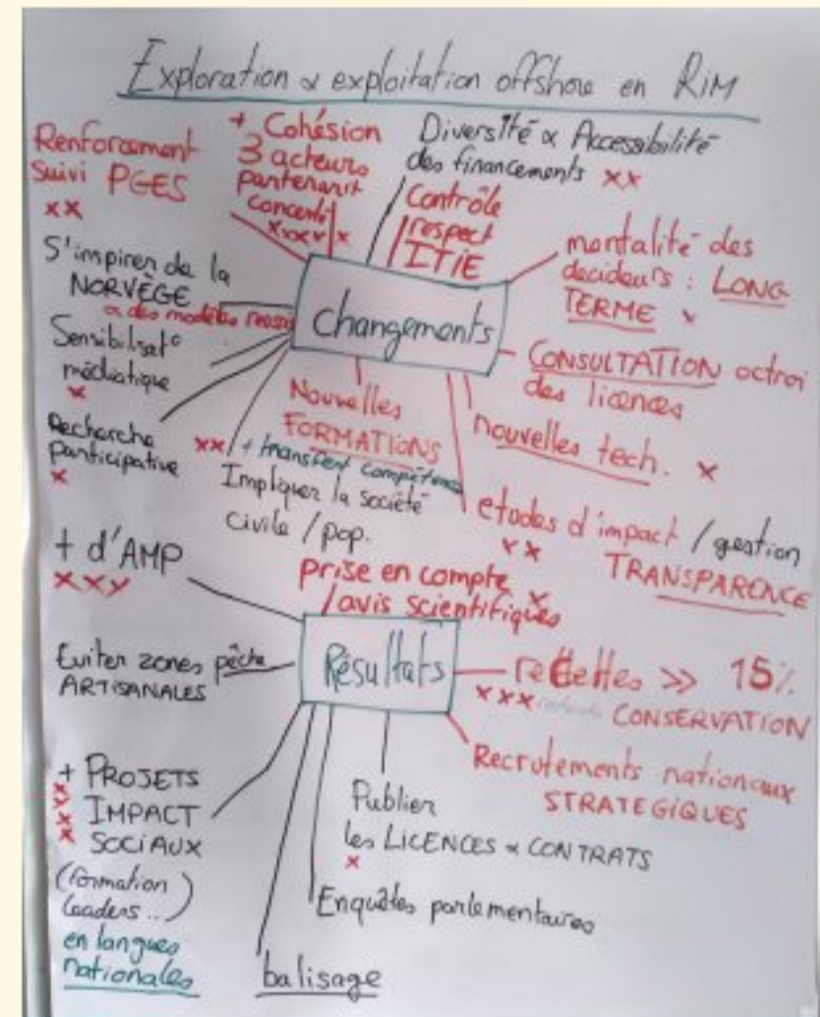 Exploration & exploitation offshore en RIM
Renforcement
suivi PGES
xx
+ Cohésion
3 acteurs
partenariat
xxxx x
Diversité & Accessibilité
des financements xx
Contrôle
respect
ITIE
mentalité des
decideurs : LONG
TERME x
S'inspirer de la
NORVÈGE
& des modèles
Sensibilisat°
médiatique
x
Recherche
participative
x
changements
CONSULTATION octroi
des licences
nouvelles tech. x
etudes d'impact / gestion
xx
TRANSPARENCE
Nouvelles
FORMATIONS
xx / + transfert compétences
Impliquer la société
civile / pop.
+ d'AMP
xxx
prise en compte x
/ avis scientifiques
Eviter zones pêche
ARTISANALES
Résultats
recettes >> 15%
xxx
CONSERVATION
Recrutements nationaux
STRATEGIQUES
+ PROJETS
x IMPACT
x SOCIAUX
(formation
leaders..)
en langues
nationales
Publier
les LICENCES & CONTRATS
x
Enquêtes parlementaires
balisage